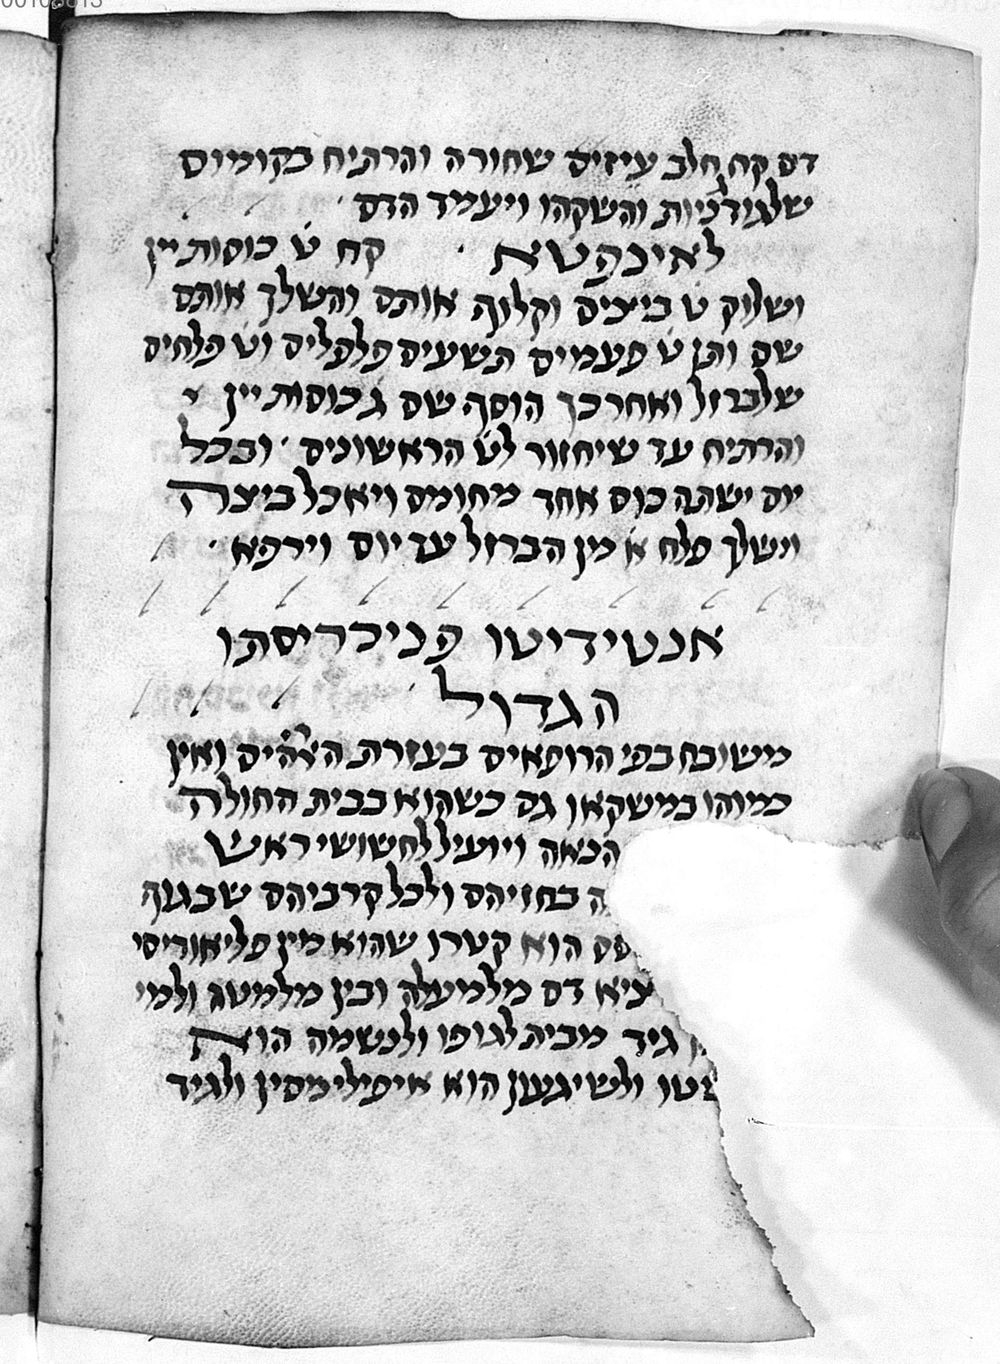 דם קח חלב עיזים שחורה והרתיח בקומום
שלגודניות והשקהו ויעמד הדם
לאיכקטא קח ט כוסות יין
ושלוק ט ביצים וקלוף אותם והשלך אותם
שם ותן ט פעמים תשעים פלפלים וט פלחים
שלברזל ואחר כך הוסף שם ג כוסות יין
והרתיח עד שיחזור לט הראשונים ובכל
יום ישתה כוס אחד מחומם ויאכל ביצה
ונשלך פלח א מן הברזל עד יום וירפא
אנטידיטו פניכריסתו
הגדול
משובח בפי הרופאים בעזרת ואין
כמוהו במשקאו גם כשהוא בבית החולה
הנאה ויועיל לחשושי ראש
בחזיהם ולכל קרביהם שבגוף
הוא קטרו שהוא מין פליאוריסי
דם מלמעלה ובין מלמטה ולמי
גיד מבית לגופו ולנשמה הוא
ולשיגעון הוא איפילימסין ולגיד